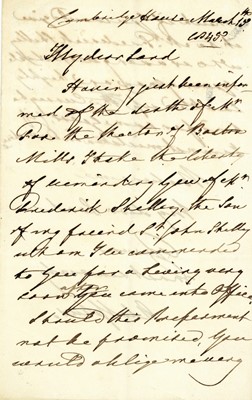 Cambridge House March
My dear Lord
Having just been infor
med of the death of Mr
Fox the Rector of Boston
Mills I take the liberty
of reminding you of Mr
Frederick Shelley, the Son
of my friend Sr John Shelley
whom I recommended
to You for a Living very
soon after You came into Office
Should this Preferment
not be promised, You
would oblige me very